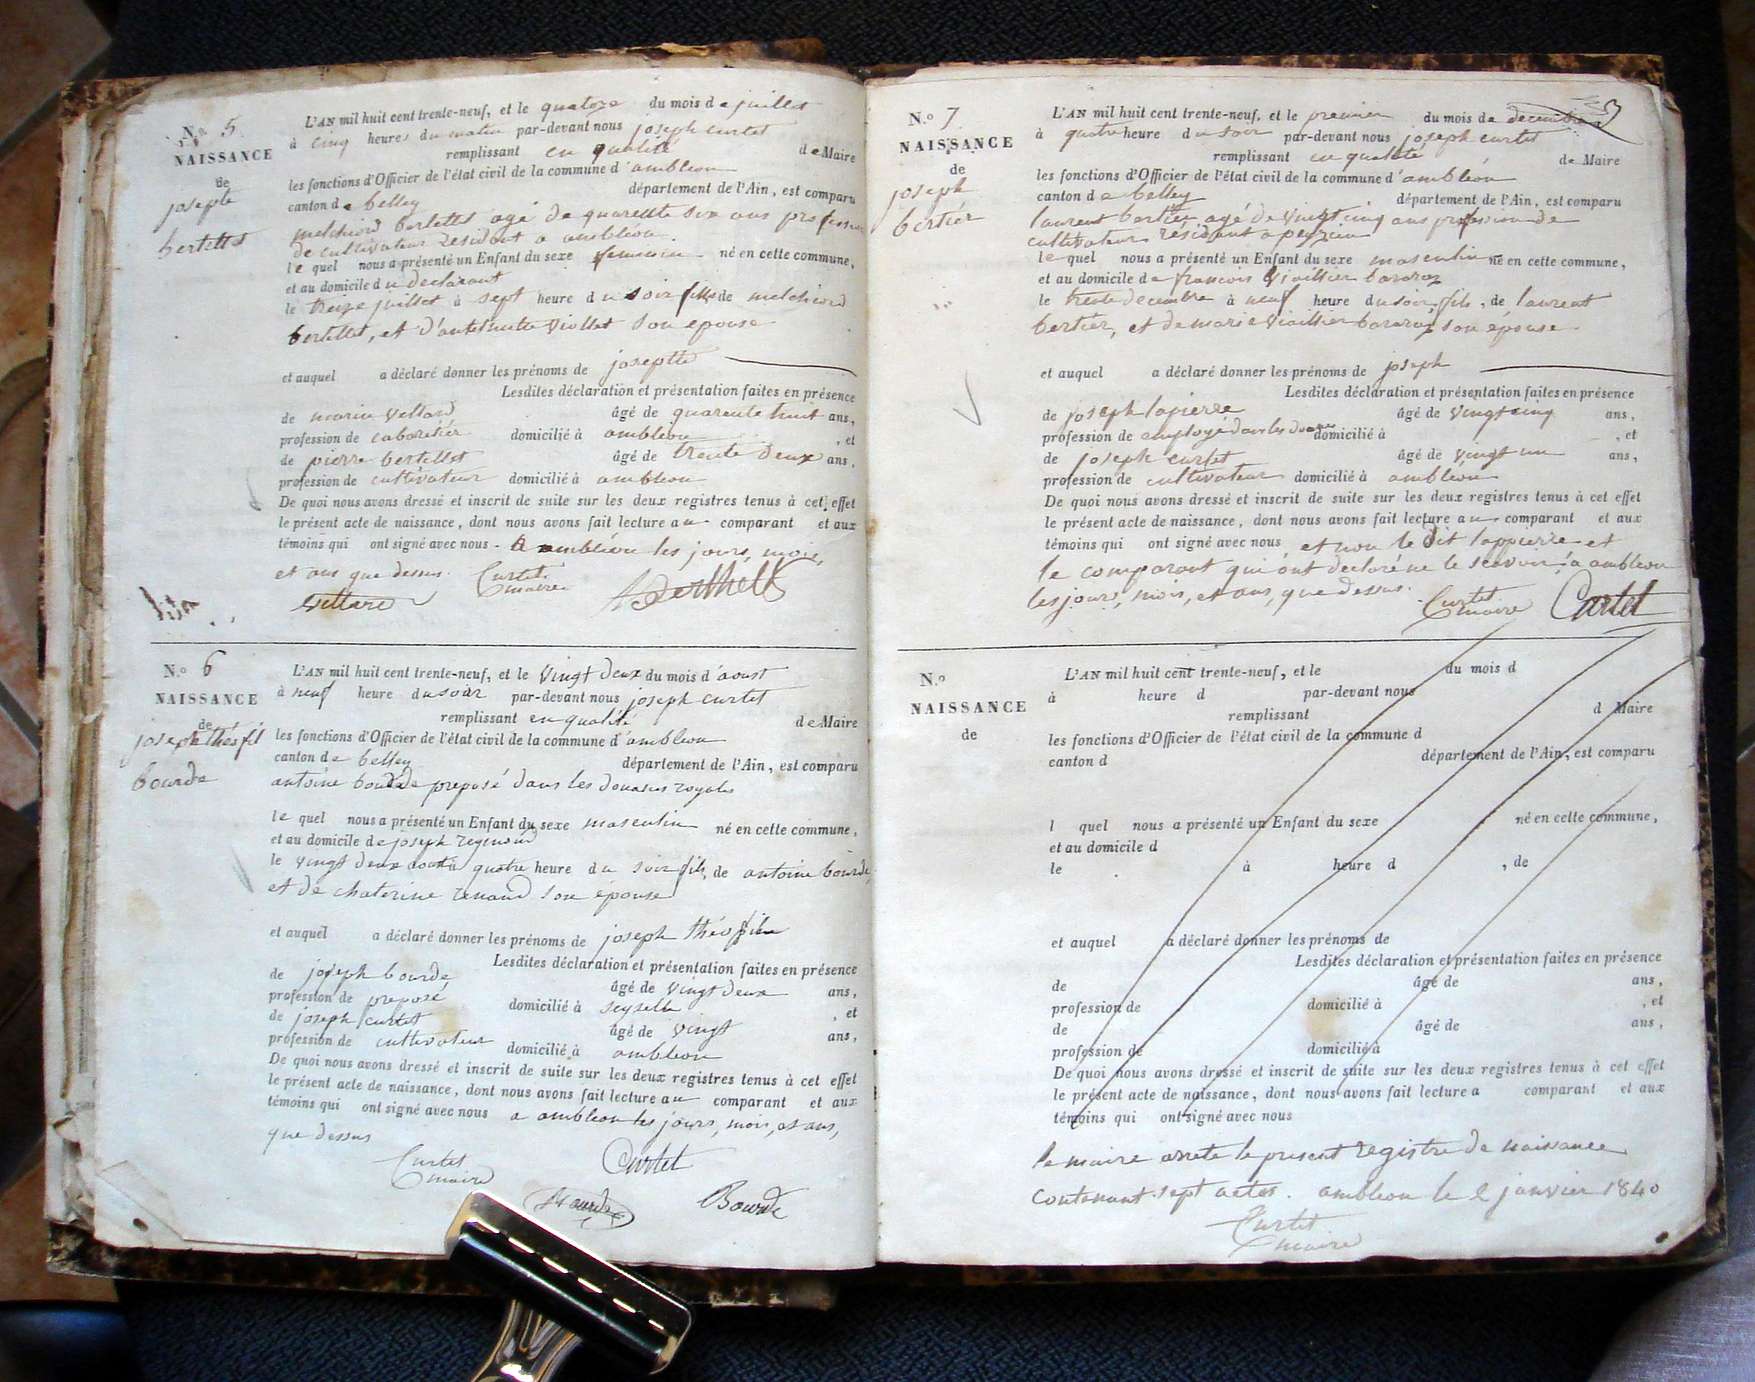 N.º 5.
NAISSANCE
de
josepte
bertellet
L'AN mil huit cent trente-neuf, et le quatorze du mois de juillet
à cinq heures du matin par-devant nous joseph curtet
remplissant en qualité de Maire
les fonctions d'Officier de l'état civil de la commune d'ambleon
canton de belley département de l'Ain, est comparu
melchiord bertellet agé de quarente six ans profession
de cultivateur residant a ambléon
le quel nous a présenté un Enfant du sexe feminin né en cette commune,
et au domicile du declarant
le treize juillet à sept heure du soir fille de melchiord
bertellet, et d' viollet son epouse
et auquel a déclaré donner les prénoms de joseptte
Lesdites déclaration et présentation faites en présence
de marin vettard âgé de quarente huit ans,
profession de cabaretier domicilié à ambléon, et
de pierre bertellet âgé de trente deux ans,
profession de cultivateur domicilié à ambleon
De quoi nous avons dressé et inscrit de suite sur les deux registres tenus à cet effet
le présent acte de naissance, dont nous avons fait lecture au comparant et aux
témoins qui ont signé avec nous. A ambléon les jours, mois,
et ans que dessus. Curtet
maire
vettard
N.º 6
NAISSANCE
de
joseph théofil
bourde
L'AN mil huit cent trente-neuf, et le vingt deux du mois d'aoust
à neuf heure du soir par-devant nous joseph curtet
remplissant en qualité de Maire
les fonctions d'Officier de l'état civil de la commune d'ambleon
canton de belley département de l'Ain, est comparu
antoine bourde preposé dans les douanes royales
le quel nous a présenté un Enfant du sexe masculin né en cette commune,
et au domicile de joseph
le vingt deux aout à quatre heure du soir fils, de antoine bourde,
et de chaterine renand son épouse
et auquel a déclaré donner les prénoms de joseph théofile
Lesdites déclaration et présentation faites en présence
de joseph bourde âgé de vingt deux ans,
profession de preposé domicilié à seyselle, et
de joseph curtet âgé de vingt ans,
profession de cultivateur domicilié à ambleon
De quoi nous avons dressé et inscrit de suite sur les deux registres tenus à cet effet
le présent acte de naissance, dont nous avons fait lecture au comparant et aux
témoins qui ont signé avec nous a ambleon les jours, mois, et ans,
que dessus
Curtet
maire
Curtet
Bourde
Bourde
N.º 7
NAISSANCE
de
joseph
bertier
L'AN mil huit cent trente-neuf, et le premier du mois de decembre
à quatre heure du soir par-devant nous joseph curtet
remplissant en qualité de Maire
les fonctions d'Officier de l'état civil de la commune d'ambléon
canton de belley département de l'Ain, est comparu
laurent bertier agé de vingt cinq ans profession de
cultivateur résidant a peyzieu
le quel nous a présenté un Enfant du sexe masculin né en cette commune,
et au domicile de francois
le trente decembre à neuf heure du soir fils, de laurent
bertier, et de marie son épouse
et auquel a déclaré donner les prénoms de joseph
Lesdites déclaration et présentation faites en présence
de joseph lapierre âgé de vingt cinq ans,
profession de employé dans les douanes domicilié à , et
de joseph curtet âgé de vingt un ans,
profession de cultivateur domicilié à ambléon
De quoi nous avons dressé et inscrit de suite sur les deux registres tenus à cet effet
le présent acte de naissance, dont nous avons fait lecture au comparant et aux
témoins qui ont signé avec nous et non le dit lappierre et
le comparant qui ont declaré ne le scavoir, à ambleon
les jours, mois, et ans, que dessus.
Curtet
maire
Curtet
N.º
NAISSANCE
de
L'AN mil huit cent trente-neuf, et le du mois d
à heure d par-devant nous
remplissant d Maire
les fonctions d'Officier de l'état civil de la commune d
canton d département de l'Ain, est comparu
l quel nous a présenté un Enfant du sexe né en cette commune,
et au domicile d
le à heure d , de
et auquel a déclaré donner les prénoms de
Lesdites déclaration et présentation faites en présence
de âgé de ans,
profession de domicilié à , et
de âgé de ans,
profession de domicilié à
De quoi nous avons dressé et inscrit de suite sur les deux registres tenus à cet effet
le présent acte de naissance, dont nous avons fait lecture a comparant et aux
témoins qui ont signé avec nous
le maire arrete le present registre de naissance
contenant sept actes. ambleon le 2 janvier 1840
Curtet
maire